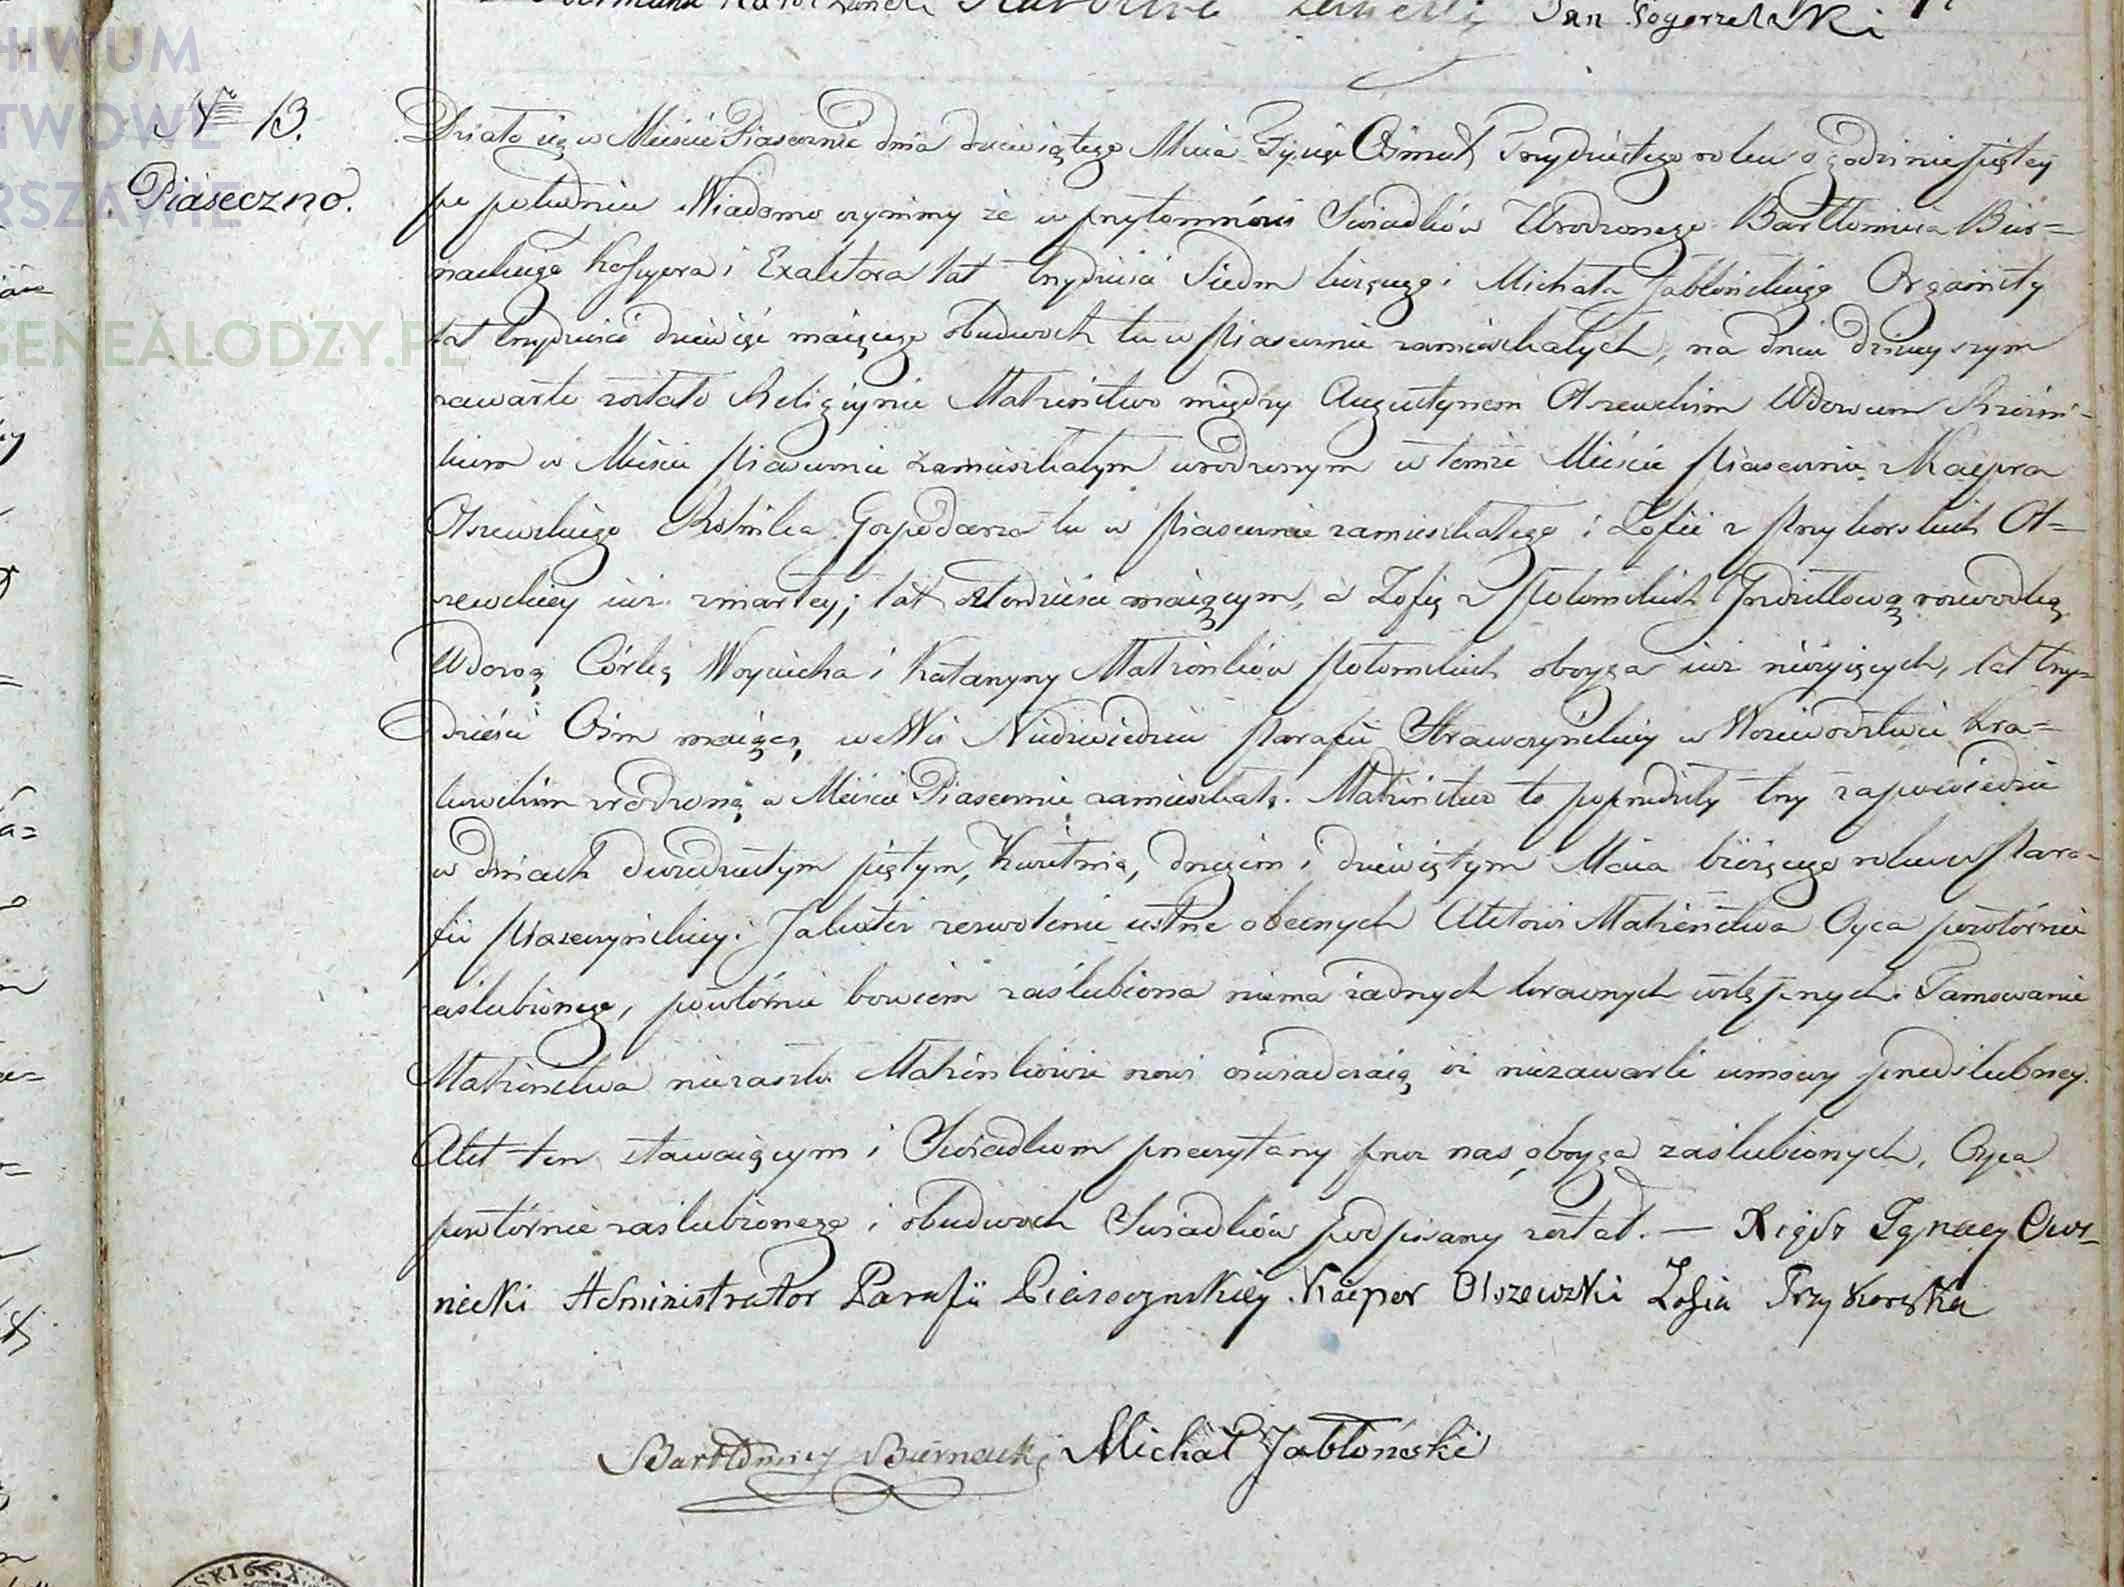 Jan Pogorzelski
Nro 13.
Piaseczno.
Działo się w Mieście Piasecznie dnia dziewiątego Maia Tysiąc Ośmset Trzydziestego roku o godzinie piątey
po południu Wiadomo czynimy że w przytomności Swiadków Urodzonego Bartłomieia Bier=
nackiego Kassyera i Exaktora lat trzydzieści Siedm liczącego i Michała Jabłońskiego Organisty
lat trzydzieści dziewięć maiącego obudwóch tu w Piasecznie zamieszkałych, na dniu dzisieyszym
zawarte zostało Religiynie Małżeństwo między Augustynem Olszewskim Wdowcem Rzeźni=
kiem w Mieście Piasecznie zamieszkałym urodzonym w temże Mieście Piasecznie z Kacpra
Olszewskiego Rolnika Gospodarza tu w Piasecznie zamieszkałego i Zofii z Przykorskich Ol=
szewskiey iuż zmarłey; lat czterdzieści maiącym, a Zofią z Potomskich
Wdową Córką Woyciecha i Katarzyny Małżonków Potomskich oboyga iuż nieżyiących, lat trzy=
dzieści Ośm maiącą, we Wsi Niedzwiedziu Parafii w Woiewodztwie Kra=
kowskim urodzoną w Mieście Piasecznie zamieszkałą. Małżeństwo to poprzedziły trzy zapowiedzie
w dniach dwudziestym piątym, Kwietnia, drugim i dziewiątym Maia bieżącego roku w Para=
fii Piaseczyńskiey: Jakoteż zezwolenie ustne obecnych Aktowi Małżeństwa Oyca powtórnie
zaślubionego, powtórnie bowiem zaślubiona niema żadnych krewnych wstępnych. Tamowanie
Małżeństwa niezaszło. Małżonkowie nowi oświadczaią iż niezawarli umowy przedślubney.
Akt ten stawaiącym i Swiadkom przeczytany przez nas, oboyga zaślubionych, Oyca
powtórnie zaślubionego i obudwóch Swiadków podpisany został. — Xiądz Ignacy Czer=
niecki Administrator Parafii Piaseczynskiey Kacper Olszewski Zofia Przykorska
Bartłomiey Biernacki Michał Jabłoński